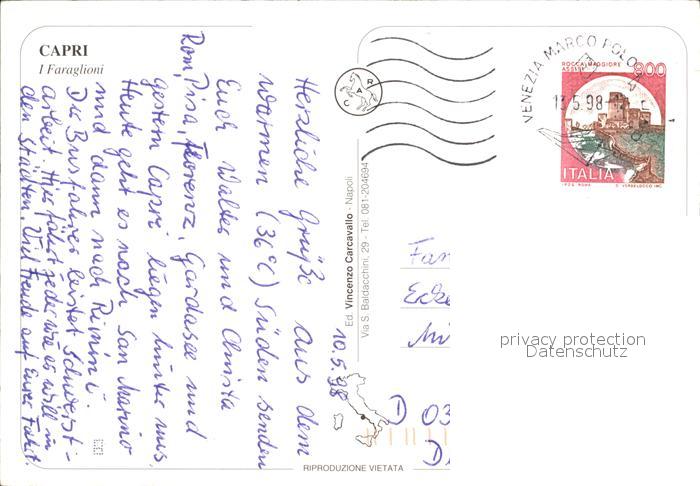 CAPRI
I Faraglioni
10.5.98
Herzliche Grüße aus dem
warmen (36°C) Süden senden
Euch Walter und Christa
Rom, Pisa, Florenz, Gardasee und
gestern Capri liegen hinter uns,
Heute geht es nach San Marino
und dann nach Rimini.
Die Busfahrer leistet Schwerst-
arbeit. Hier fährt jeder wie es will in
den Städten. Viel Freude auf Eurer Fahrt.
CAR
Ed. Vincenzo Carcavallo - Napoli
Via S. Baldacchini, 29 - Tel. 081-204694
RIPRODUZIONE VIETATA
VENEZIA MARCO POLO
13.5.98
ROCCA MAGGIORE
ASSISI
800
ITALIA
I.P.Z.S. ROMA
E. VERDELOCCO INC.
Fam
Ecke
Mi
D 03
privacy protection
Datenschutz